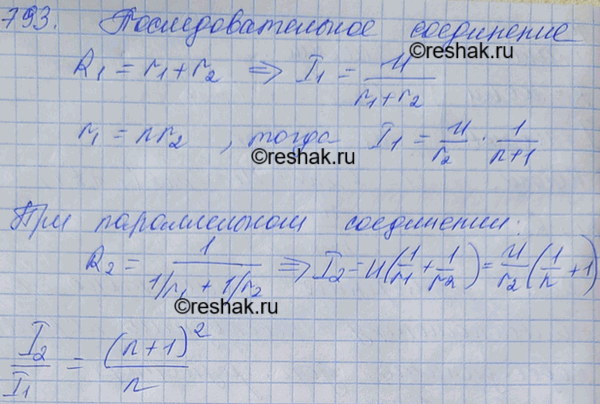 793. Последовательное соединение
©reshak.ru
R₁ = r₁ + r₂ ⇒ I₁ = u/(r₁ + r₂)
©reshak.ru
r₁ = n r₂ , тогда I₁ = u/r₂ · 1/(n+1)
©reshak.ru
При параллельном соединении:
R₂ = 1/(1/r₁ + 1/r₂) ⇒ I₂ = u(1/r₁ + 1/r₂) = u/r₂ (1/n + 1)
©reshak.ru
I₂/I₁ = (n+1)²/n